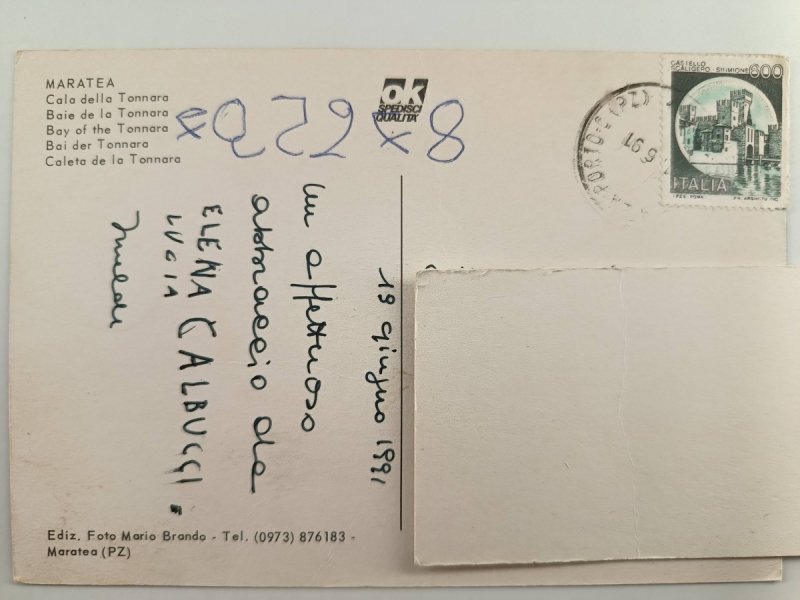 MARATEA
Cala della Tonnara
Baie de la Tonnara
Bay of the Tonnara
Bai der Tonnara
Caleta de la Tonnara
ok
SPEDISCI
QUALITÀ
CASTELLO
SCALIGERO - SIRMIONE 600
ITALIA
I.P.Z.S. ROMA
PORTO (PZ)
6 91
19 giugno 1991
Un affettuoso
abbraccio da
ELENA CALBUCCI
LUCIA
Ediz. Foto Mario Brando - Tel. (0973) 876183 -
Maratea (PZ)